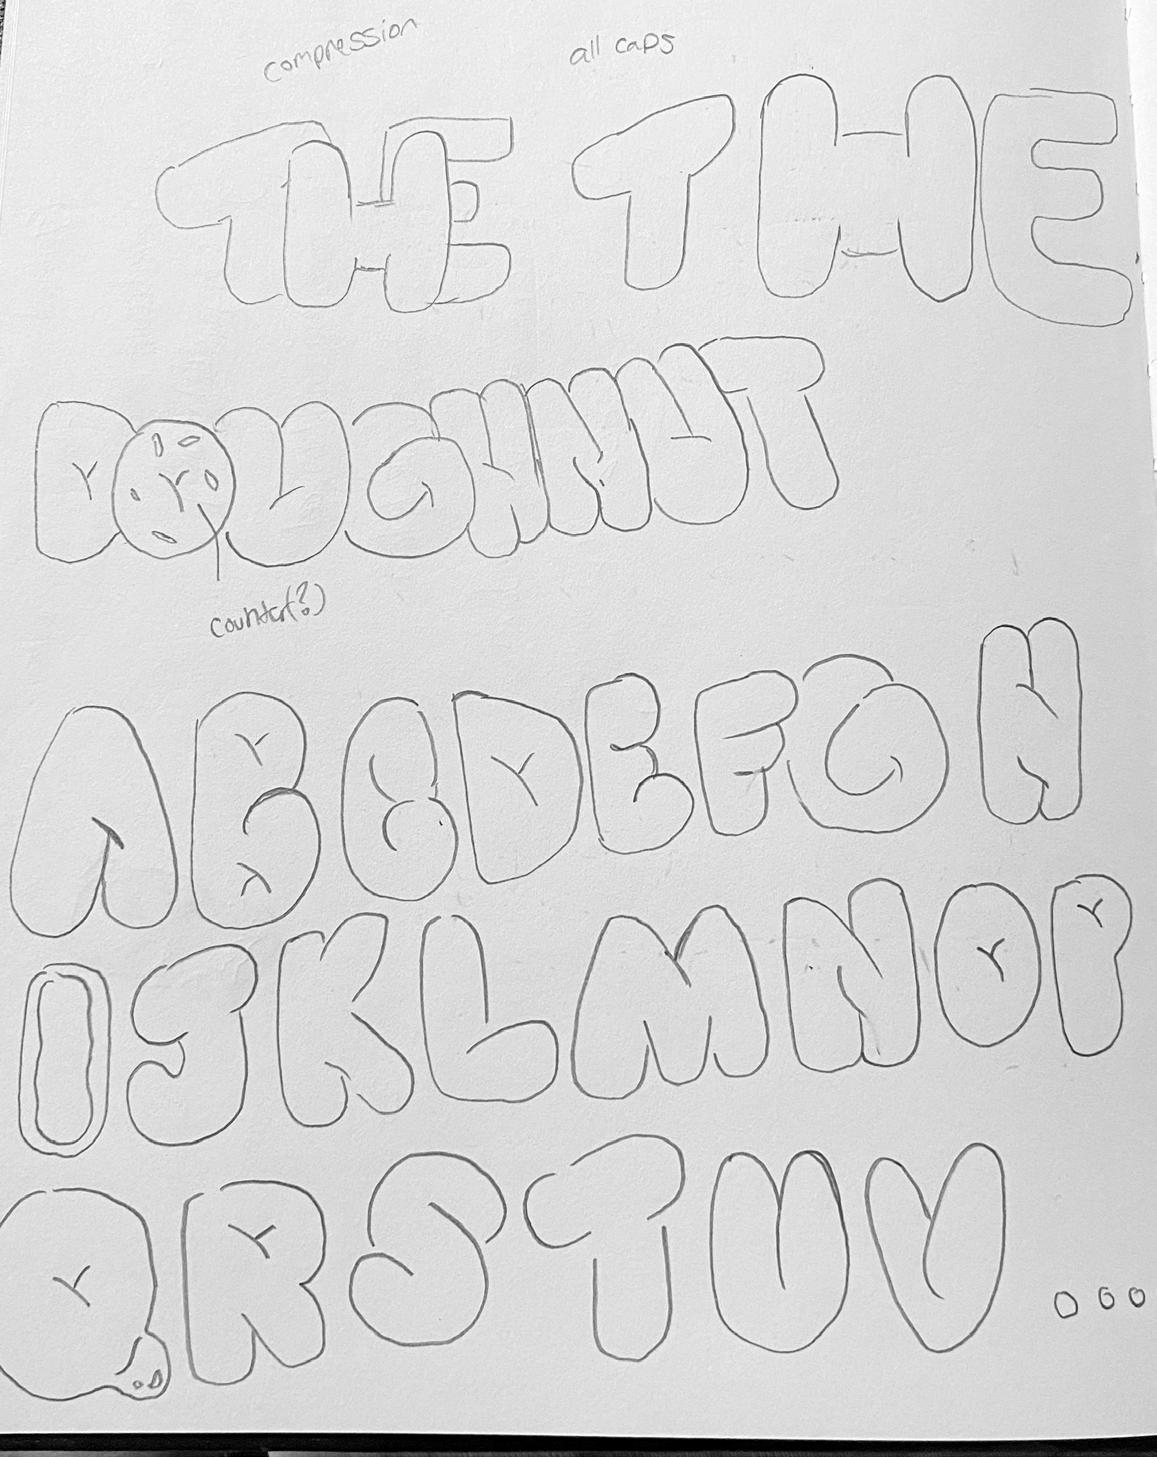 compression all caps
THE THE
DOUGHNUT
counter(?)
ABCDEFGH
IJKLMNOP
QRSTUV...